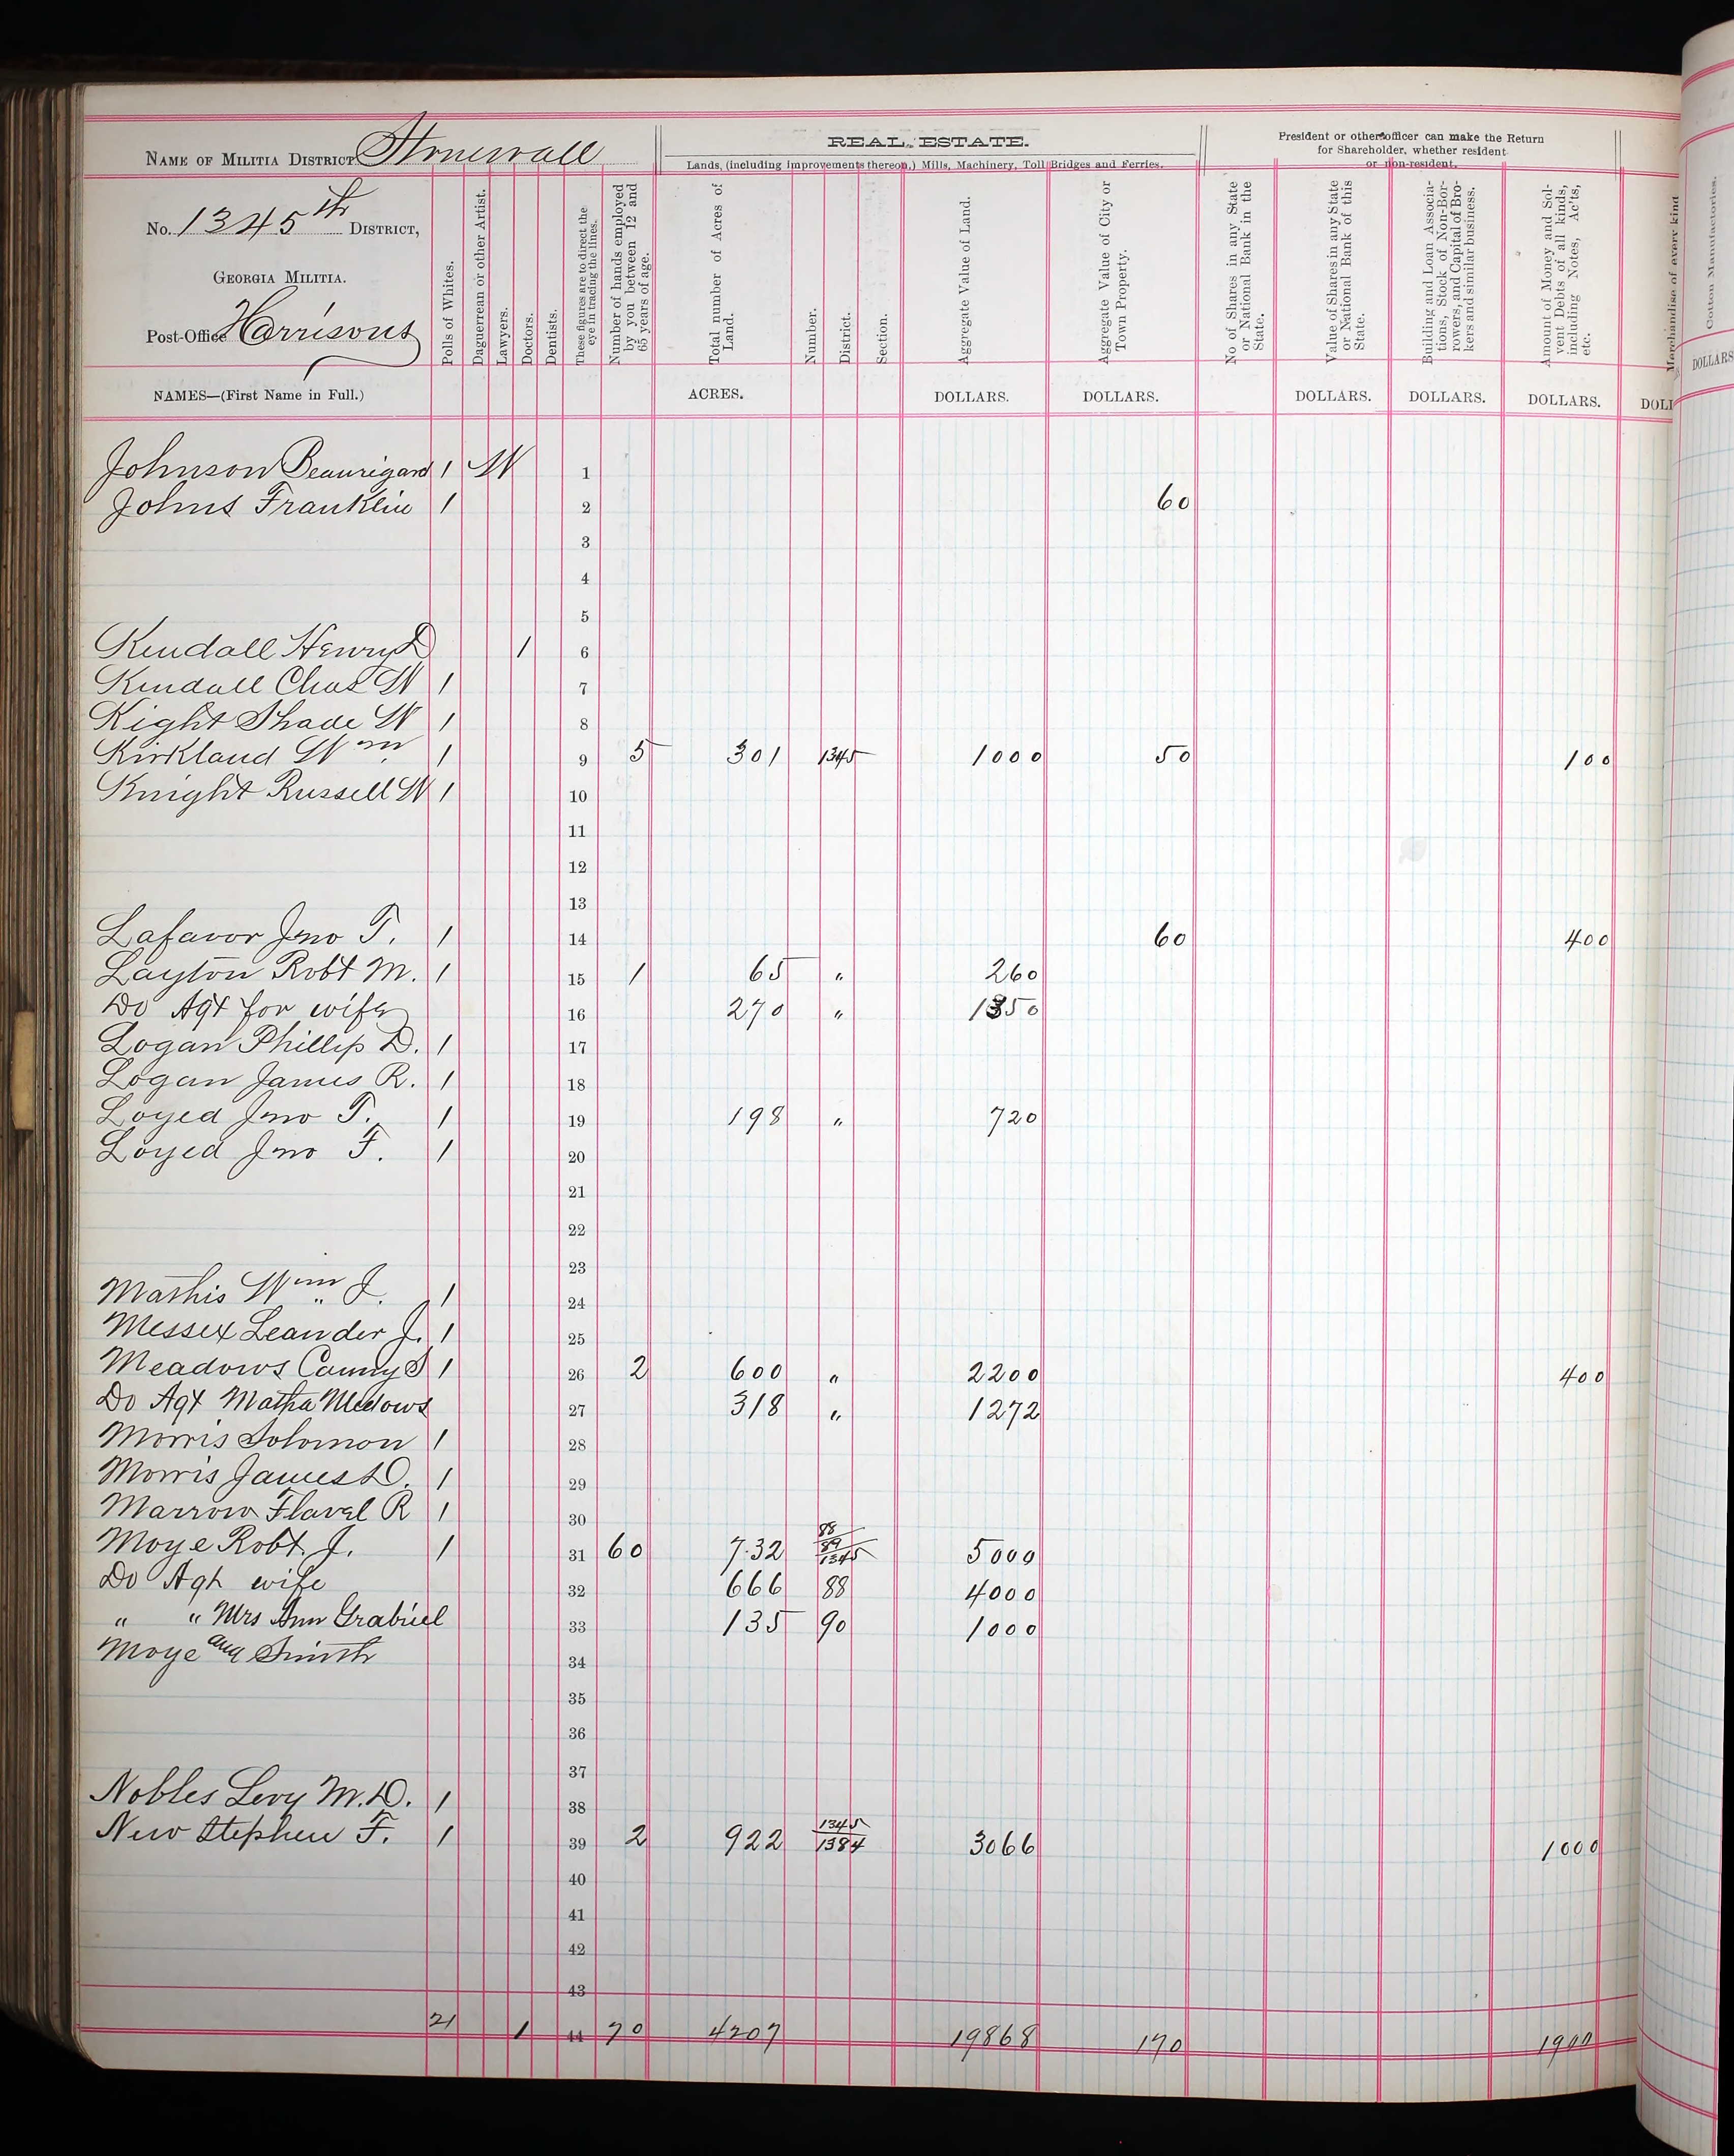 NAME OF MILITIA DISTRICT Stonewall
No. 1345th DISTRICT,
GEORGIA MILITIA.
Post-Office Harrisons
NAMES—(First Name in Full.)
Polls of Whites.
Daguerrean or other Artist.
Lawyers.
Doctors.
Dentists.
These figures are to direct the eye in tracing the lines.
Number of hands employed by you between 12 and 65 years of age.
REAL ESTATE.
Lands, (including improvements thereon,) Mills, Machinery, Toll Bridges and Ferries.
Total number of Acres of Land.
ACRES.
Number.
District.
Section.
Aggregate Value of Land.
DOLLARS.
Aggregate Value of City or Town Property.
DOLLARS.
President or other officer can make the Return
for Shareholder, whether resident
or non-resident.
No of Shares in any State or National Bank in the State.
Value of Shares in any State or National Bank of this State.
DOLLARS.
Building and Loan Associations, Stock of Non-Borrowers, and Capital of Brokers and similar business.
DOLLARS.
Amount of Money and Solvent Debts of all kinds, including Notes, Ac'ts, etc.
DOLLARS.
Merchandise of every kind
DOLL
Cotton Manufactories.
DOLLARS
Johnson Beaurigard 1 W 1
Johns Franklin 1 2 60
3
4
5
Kendall Henry D 1 6
Kendall Chas W 1 7
Kight Shade W 1 8
Kirkland Wm 1 9 5 301 1345 1000 50 100
Knight Russell W 1 10
11
12
13
Lafavor Jno T. 1 14 60 400
Layton Robt M. 1 15 1 65 " 260
Do Agt for wife 16 270 " 1350
Logan Phillip D. 1 17
Logan James R. 1 18
Loyed Jno T. 1 19 198 " 720
Loyed Jno F. 1 20
21
22
23
Mathis Wm J. 1 24
Messex Leander J. 1 25
Meadows Canny S 1 26 2 600 " 2200 400
Do Agt Matha Medows 27 318 " 1272
Morris Solomon 1 28
Morris James D. 1 29
Marrow Flavel R 1 30
Moye Robt. J. 1 31 60 732 88 89 1345 5000
Do Agt wife 32 666 88 4000
" " Mrs Ann Grabriel 33 135 90 1000
Moye and Smith 34
35
36
37
Nobles Levy M.D. 1 38
New Stephen F. 1 39 2 922 1345 1384 3066 1000
40
41
42
43
21 1 44 70 4207 19868 170 1900